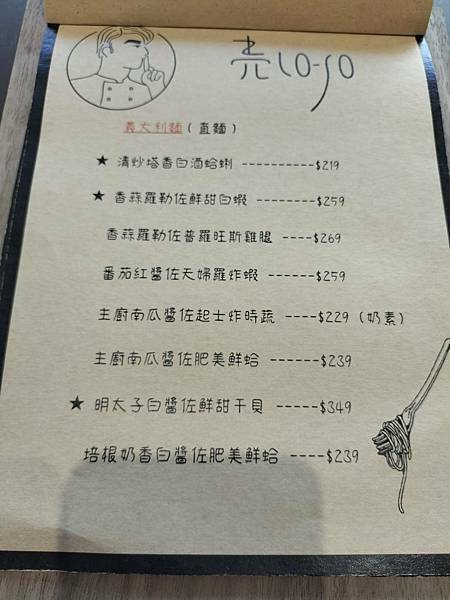 売 LO-SO
義大利麵 ( 直麵 )
★ 清炒塔香白酒蛤蜊 ----------$219
★ 香蒜羅勒佐鮮甜白蝦 --------$259
香蒜羅勒佐普羅旺斯雞腿 ----$269
番茄紅醬佐天婦羅炸蝦 ------$259
主廚南瓜醬佐起士炸時蔬 ----$229 ( 奶素 )
主廚南瓜醬佐肥美鮮蛤 ------$239
★ 明太子白醬佐鮮甜干貝 -----$349
培根奶香白醬佐肥美鮮蛤 ----$239